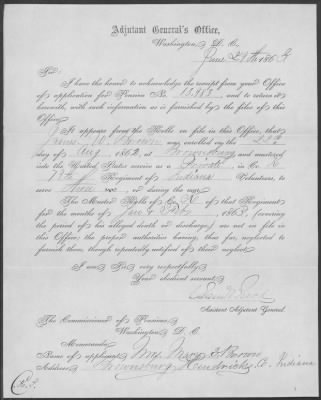 Adjutant General's Office,
Washington D. C.
June 29th 186
Sir:
I have the honor to acknowledge the receipt from your Office
of application for Pension No. 15,983, and to return it
herewith, with such information as is furnished by the files of this
Office.
It appears from the Rolls on file in this Office, that
James W. Brown was enrolled on the
day of Aug, 1862, at and mustered
into the United States service as a Private in Co.
Regiment of Indiana Volunteers, to
serve Three , or during the war.
The Muster Rolls of Co. K of that Regiment
for the months of Jan & Feb, 1863, (covering
the period of his alleged death or discharge,) are not on file in
this Office; the proper authorities having, thus far, neglected to
furnish them, though repeatedly notified of their neglect.
I am Sir very respectfully,
Your obedient servant,
Assistant Adjutant General.
The Commissioner of Pensions,
Washington D. C.
Memoranda:
Name of applicant, Mrs Mary Brown
Address, Brownsburg Hendricks Co. Indiana